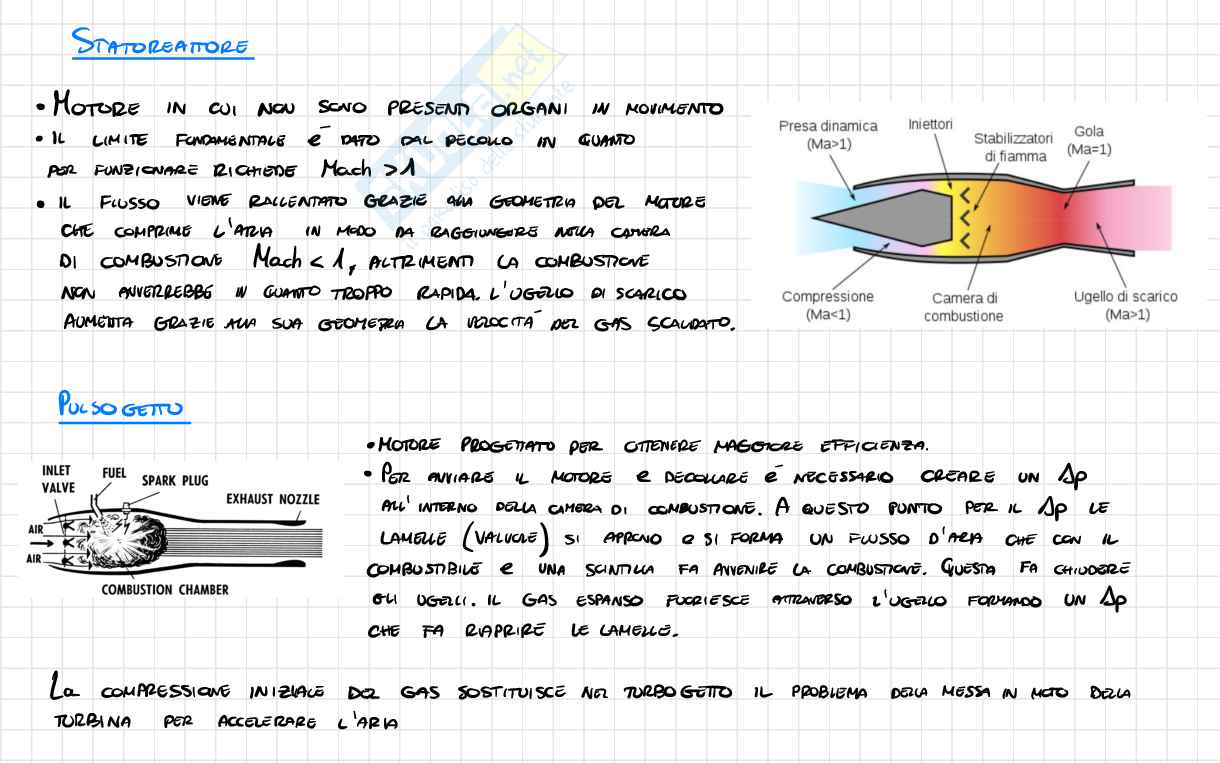 STATOREATTORE
• MOTORE IN CUI NON SONO PRESENTI ORGANI IN MOVIMENTO
• IL LIMITE FONDAMENTALE È DATO DAL DECOLLO IN QUANTO
PER FUNZIONARE RICHIEDE Mach > 1
• IL FLUSSO VIENE RALLENTATO GRAZIE ALLA GEOMETRIA DEL MOTORE
CHE COMPRIME L'ARIA IN MODO DA RAGGIUNGERE NELLA CAMERA
DI COMBUSTIONE Mach < 1, ALTRIMENTI LA COMBUSTIONE
NON AVVERREBBE IN QUANTO TROPPO RAPIDA. L'UGELLO DI SCARICO
AUMENTA GRAZIE ALLA SUA GEOMETRIA LA VELOCITÀ DEL GAS SCALDATO.
Presa dinamica
(Ma>1)
Iniettori
Stabilizzatori
di fiamma
Gola
(Ma=1)
Compressione
(Ma<1)
Camera di
combustione
Ugello di scarico
(Ma>1)
PULSOGETTO
INLET
VALVE
FUEL
SPARK PLUG
EXHAUST NOZZLE
AIR
AIR
COMBUSTION CHAMBER
• MOTORE PROGETTATO PER OTTENERE MAGGIORE EFFICIENZA.
• PER AVVIARE IL MOTORE e DECOLLARE È NECESSARIO CREARE UN Δp
ALL'INTERNO DELLA CAMERA DI COMBUSTIONE. A QUESTO PUNTO PER IL Δp LE
LAMELLE (VALVOLE) SI APRONO e SI FORMA UN FLUSSO D'ARIA CHE CON IL
COMBUSTIBILE e UNA SCINTILLA FA AVVENIRE LA COMBUSTIONE. QUESTA FA CHIUDERE
GLI UGELLI. IL GAS ESPANSO FUORIESCE ATTRAVERSO L'UGELLO FORMANDO UN Δp
CHE FA RIAPRIRE LE LAMELLE.
La COMPRESSIONE INIZIALE DEL GAS SOSTITUISCE NEL TURBOGETTO IL PROBLEMA DELLA MESSA IN MOTO DELLA
TURBINA PER ACCELERARE L'ARIA